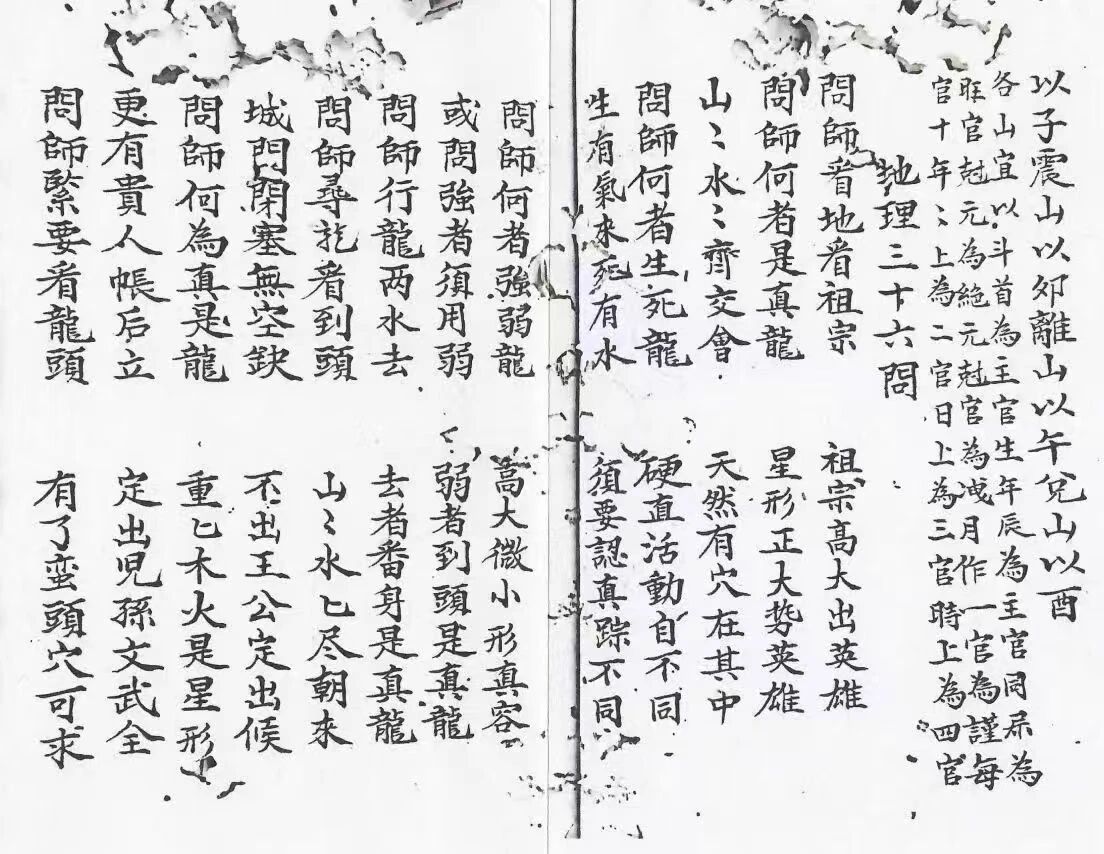 以子震山以卯離山以午兌山以酉
各山宜以斗首為主官生年辰為主官同屎為
旺官尅元為絕元尅官為洩月作一官為謹每
官十年〻上為二官日上為三官時上為四官
地理三十六問
問師看地看祖宗 祖宗高大出英雄
問師何者是真龍 星形正大势英雄
山〻水〻齊交會 天然有穴在其中
問師何者生死龍 硬直活動自不同
生有氣來死有水 須要認真踪不同
問師何者強弱龍 嵩大微小形真容
或問強者須用弱 弱者到頭是真龍
問師行龍两水去 去者番身是真龍
問師尋龍看到頭 山〻水匕尽朝來
城門閉塞無空缺 不出王公定出候
問師何為真是龍 重匕木火是星形
更有貴人帳后立 定出児孫文武全
問師緊要看龍頭 有了蛮頭穴可求